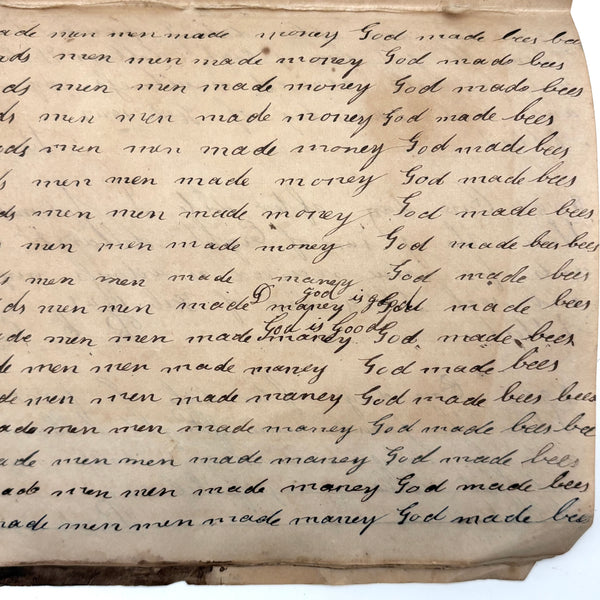 ade men men made money God made bees bee
ds men men made money God made bees
ds men men made money God made bees
ds men men made money God made bees
ods men men made money God made bees
ds men men made money God made bees
ds men men made money God made bees
s men men made money God made bees bees
ds men men made maney God made bees
ds men men made D maney God made bees
God is good
God is Good
de men men made maney God made bees
de men men made maney God made bees
de men men made maney God made bees bees
ade men men made maney God made bees bee
ade men men made maney God made bees
ade men men made maney God made bees
made men men made maney God made bee